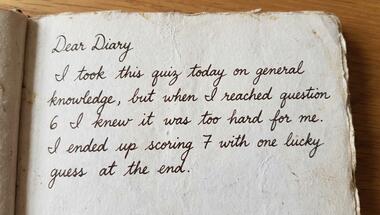 Dear Diary
I took this quiz today on general
knowledge, but when I reached question
6 I knew it was too hard for me.
I ended up scoring 7 with one lucky
guess at the end.